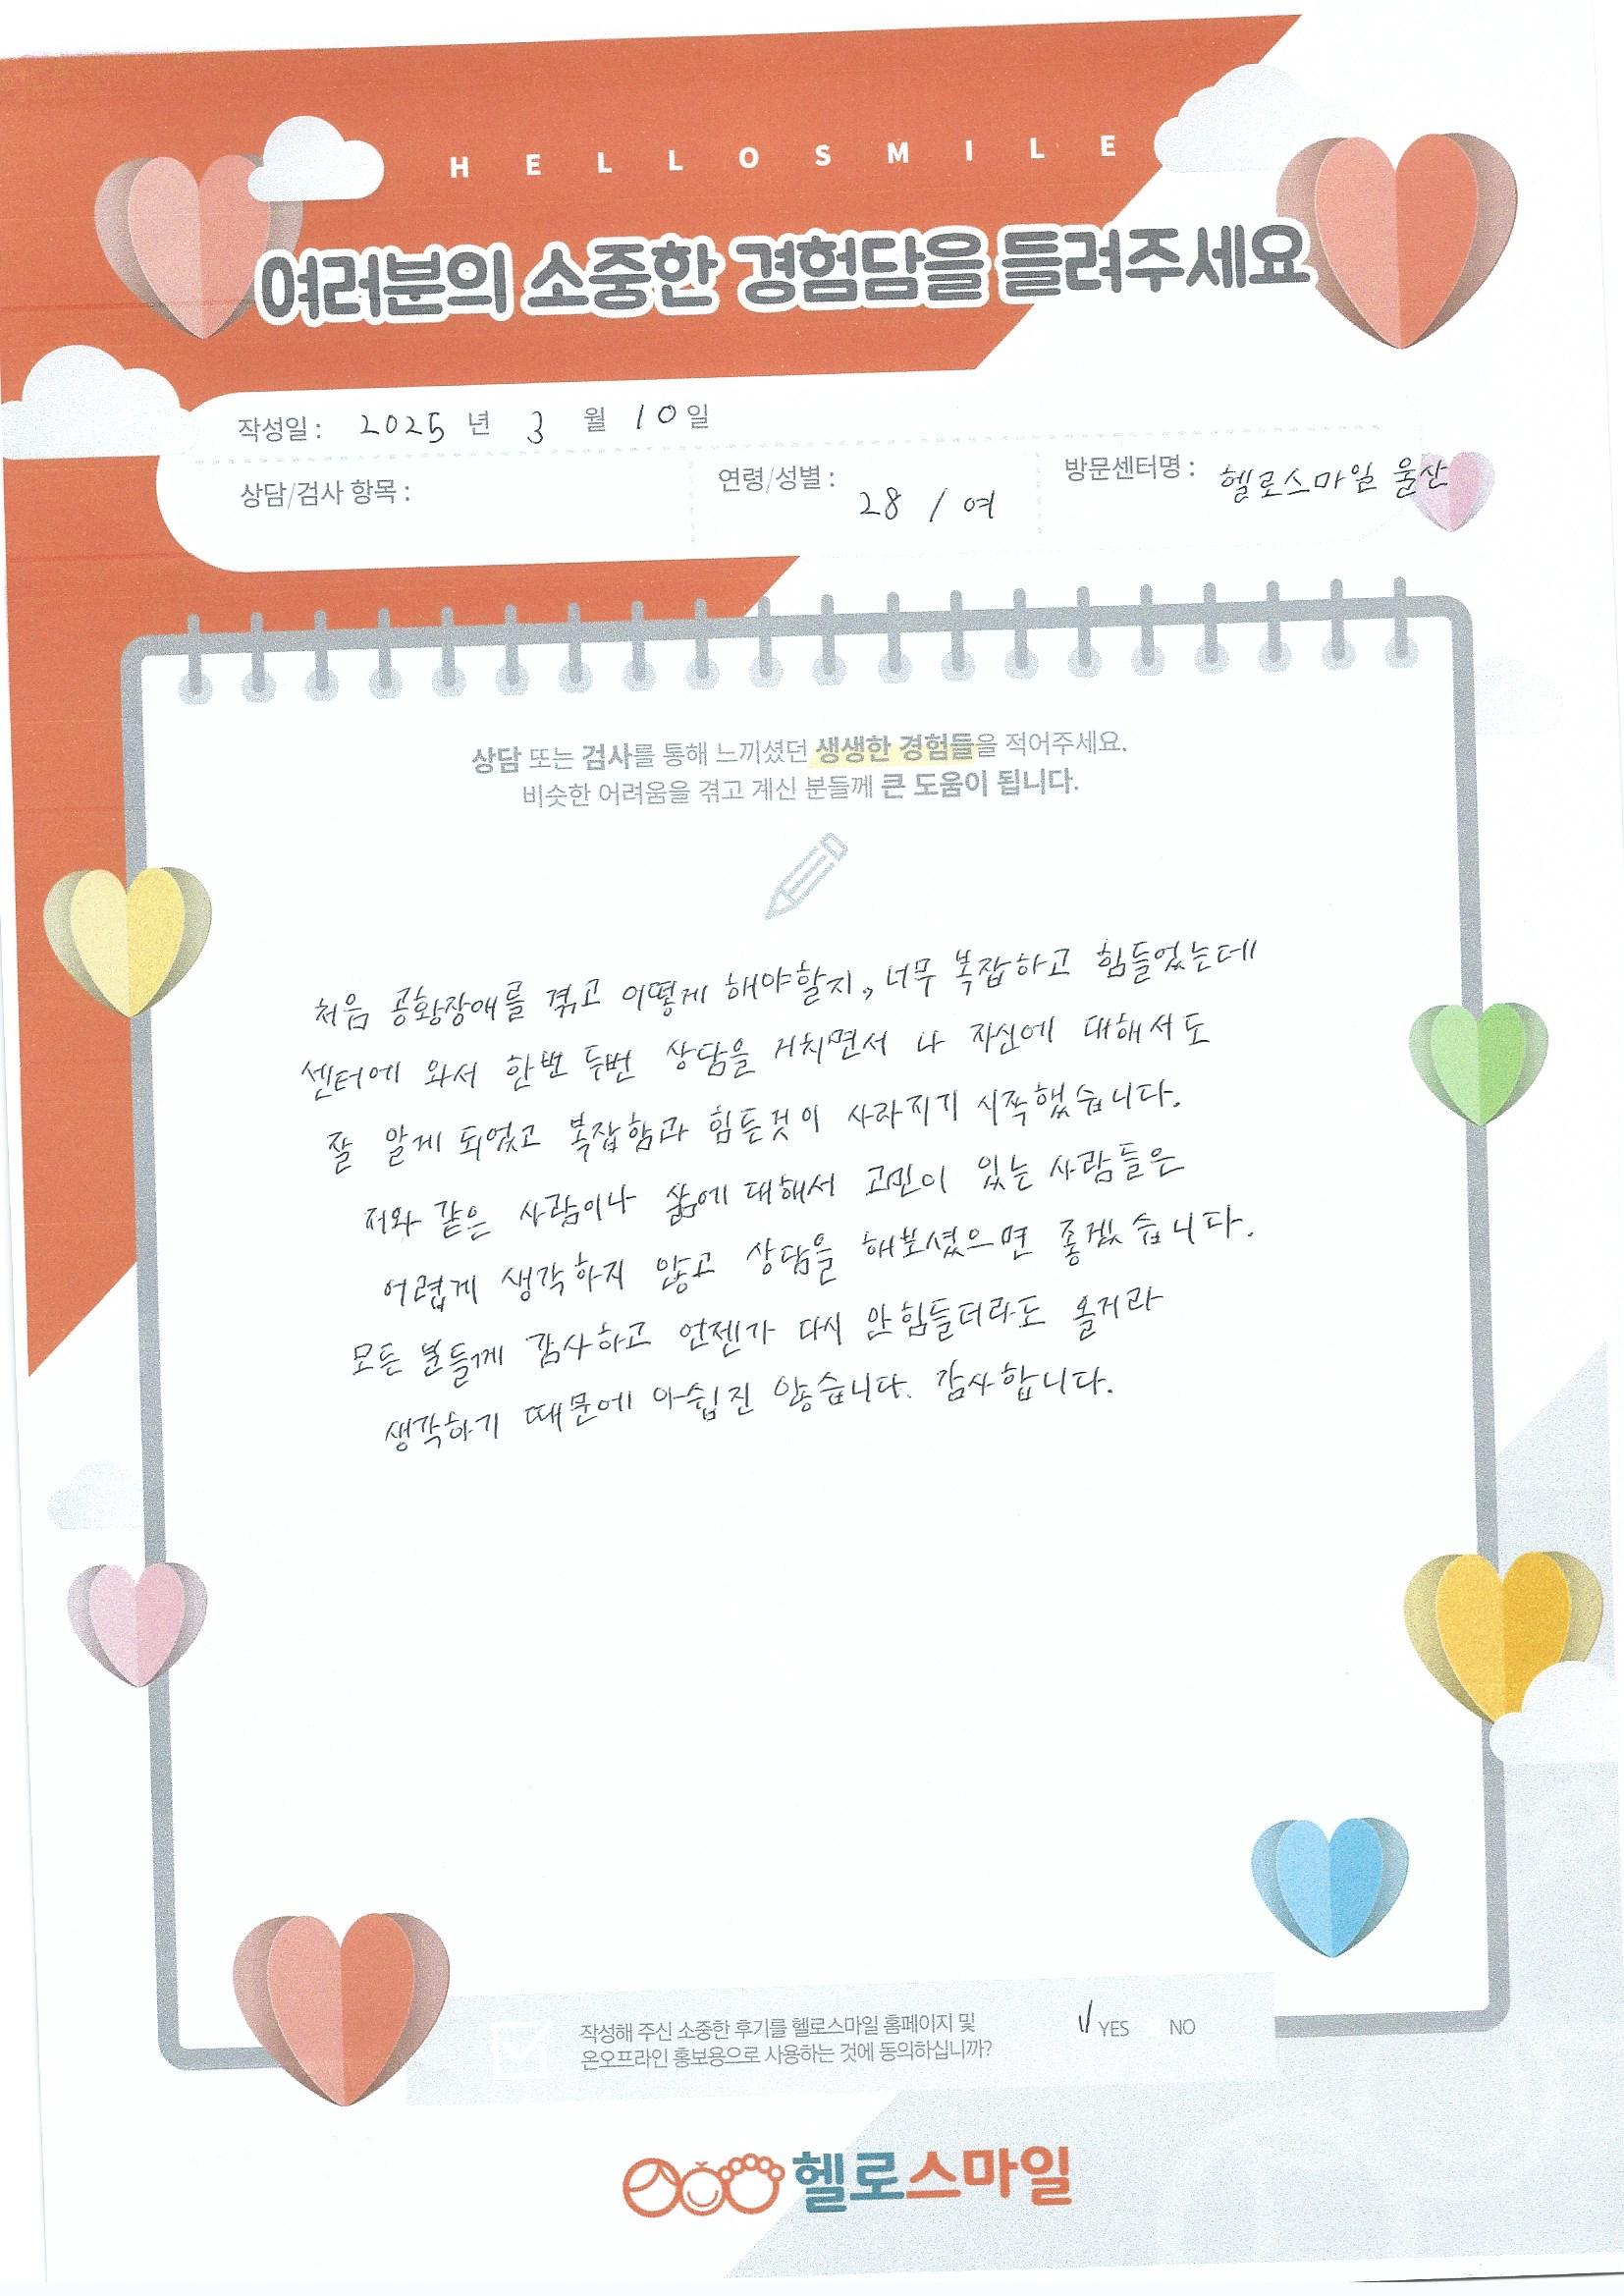 HELLOSMILE
여러분의 소중한 경험담을 들려주세요
작성일 : 2025 년 3 월 10 일
상담/검사 항목 :
연령/성별 : 28 / 여
방문센터명 : 헬로스마일 울산
상담 또는 검사를 통해 느끼셨던 생생한 경험들을 적어주세요.
비슷한 어려움을 겪고 계신 분들께 큰 도움이 됩니다.
처음 공황장애를 겪고 어떻게 해야할지, 너무 복잡하고 힘들었는데
센터에 와서 한번 두번 상담을 거치면서 나 자신에 대해서도
잘 알게 되었고 복잡함과 힘든것이 사라지기 시작했습니다.
저와 같은 사람이나 삶에 대해서 고민이 있는 사람들은
어렵게 생각하지 않고 상담을 해보셨으면 좋겠습니다.
모든 분들께 감사하고 언젠가 다시 안힘들더라도 올거라
생각하기 때문에 아쉽진 않습니다. 감사합니다.
작성해 주신 소중한 후기를 헬로스마일 홈페이지 및
온오프라인 홍보용으로 사용하는 것에 동의하십니까?
YES NO
헬로스마일